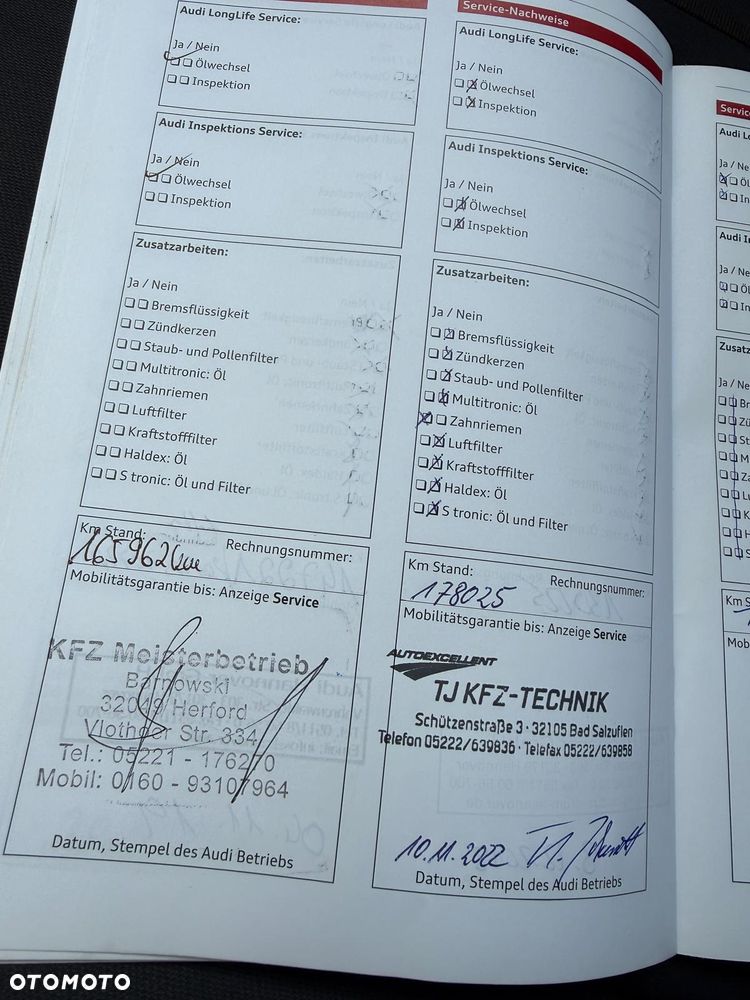 Audi LongLife Service:
Ja / Nein
Ölwechsel
Inspektion
Audi Inspektions Service:
Ja / Nein
Ölwechsel
Inspektion
Zusatzarbeiten:
Ja / Nein
Bremsflüssigkeit
Zündkerzen
Staub- und Pollenfilter
Multitronic: Öl
Zahnriemen
Luftfilter
Kraftstofffilter
Haldex: Öl
S tronic: Öl und Filter
Km Stand:
Rechnungsnummer:
165962km
Mobilitätsgarantie bis: Anzeige Service
KFZ Meisterbetrieb
Barnowski
32049 Herford
Vlothoer Str. 334
Tel.: 05221 - 176270
Mobil: 0160 - 93107964
Datum, Stempel des Audi Betriebs
Service-Nachweise
Audi LongLife Service:
Ja / Nein
Ölwechsel
Inspektion
Audi Inspektions Service:
Ja / Nein
Ölwechsel
Inspektion
Zusatzarbeiten:
Ja / Nein
Bremsflüssigkeit
Zündkerzen
Staub- und Pollenfilter
Multitronic: Öl
Zahnriemen
Luftfilter
Kraftstofffilter
Haldex: Öl
S tronic: Öl und Filter
Km Stand:
Rechnungsnummer:
178025
Mobilitätsgarantie bis: Anzeige Service
AUTOEXCELLENT
TJ KFZ-TECHNIK
Schützenstraße 3 · 32105 Bad Salzuflen
Telefon 05222/639836 · Telefax 05222/639858
10.11.2022
Datum, Stempel des Audi Betriebs
Service
Audi Lo
Ja / Ne
Öl
In
Audi I
Ja / Ne
Öl
In
Zusatz
Ja / Ne
Br
Zü
St
M
Za
Lu
K
H
S
Km S
Mobil
OTOMOTO